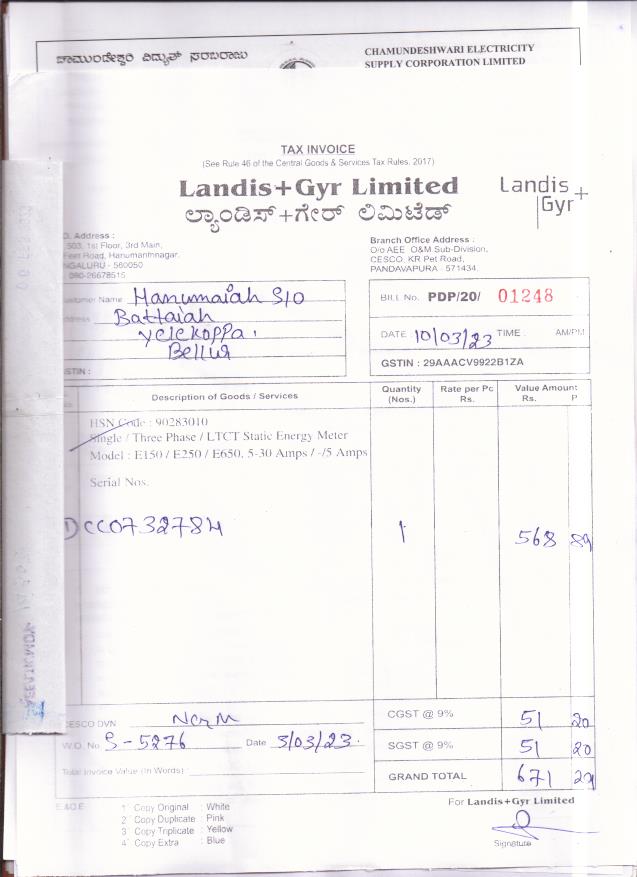 ಚಾಮುಂಡೇಶ್ವರಿ ವಿದ್ಯುತ್ ಸರಬರಾಜು
CHAMUNDESHWARI ELECTRICITY
SUPPLY CORPORATION LIMITED
TAX INVOICE
(See Rule 46 of the Central Goods & Services Tax Rules, 2017)
Landis+Gyr Limited
ಲ್ಯಾಂಡಿಸ್+ಗೇರ್ ಲಿಮಿಟೆಡ್
Landis+
Gyr
Address :
503, 1st Floor, 3rd Main,
Feet Road, Hanumanthnagar,
NGALURU - 560050
080-26678515
Branch Office Address :
O/o AEE O&M Sub-Division,
CESCO, KR Pet Road,
PANDAVAPURA - 571434.
Customer Name Hanumaiah S/O
Address Battaiah
Yelekoppa,
Bellur
GSTIN :
BILL No. PDP/20/ 01248
DATE 10/03/23 TIME : AM/PM
GSTIN : 29AAACV9922B1ZA
Description of Goods / Services
Quantity (Nos.)
Rate per Pc Rs.
Value Amount Rs. P
HSN Code : 90283010
Single / Three Phase / LTCT Static Energy Meter
Model : E150 / E250 / E650, 5-30 Amps / -/5 Amps
Serial Nos.
1) CC0732784 1 568 89
CESCO DVN
CGST @ 9% 51 20
W.O. No S-5276 Date 3/03/23
SGST @ 9% 51 20
Total Invoice Value (In Words)
GRAND TOTAL 671 29
E.&O.E
1 Copy Original : White
2 Copy Duplicate : Pink
3 Copy Triplicate : Yellow
4 Copy Extra : Blue
For Landis+Gyr Limited
Signature